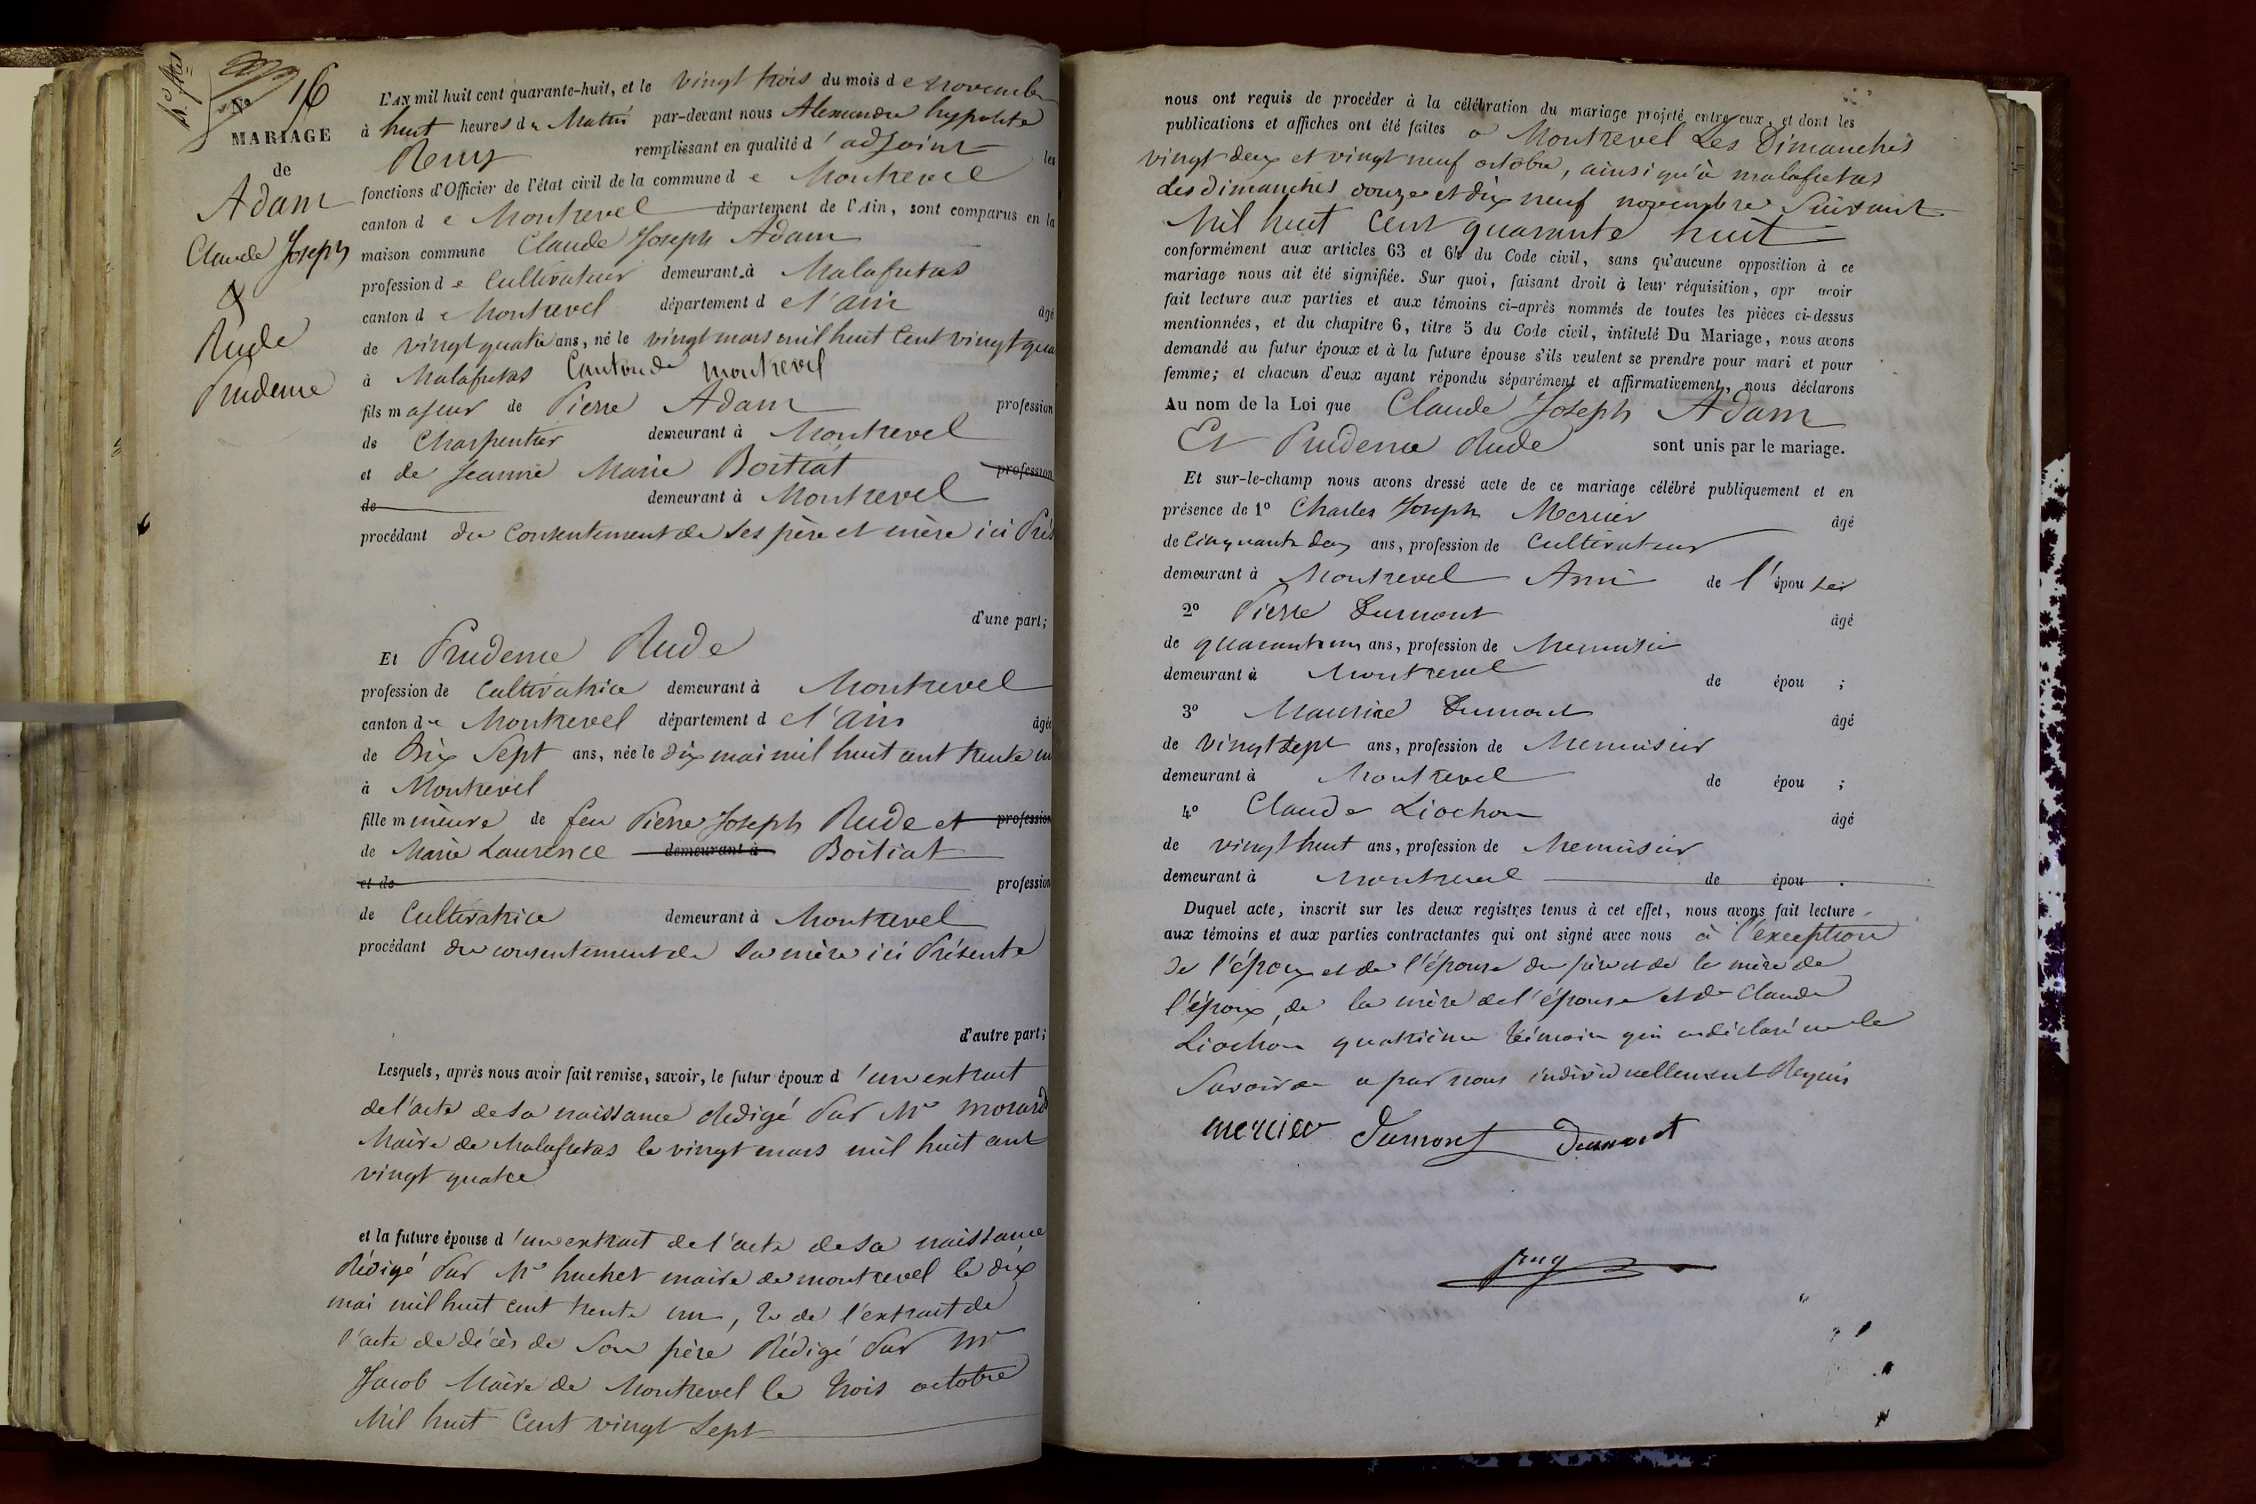 No 16
MARIAGE
de
Adam
Claude Joseph
&
Rude
Prudence
L'AN mil huit cent quarante-huit, et le vingt trois du mois de novembre
à huit heures du Matin par-devant nous Alexandre hypolite
remplissant en qualité d'adjoint les
fonctions d'Officier de l'état civil de la commune de Montrevel
canton de Montrevel département de l'Ain, sont comparus en la
maison commune Claude Joseph Adam
profession de Cultivateur demeurant à Malafretas
canton de Montrevel département de l'ain âgé
de vingt quatre ans, né le vingt mars mil huit Cent vingt qua
à Malafretas Canton de montrevel
fils majeur de Pierre Adam profession
de Charpentier demeurant à Montrevel
et de Jeanne Marie Boitiat profession
de demeurant à Montrevel
procédant du Consentement de ses père et mère ici Prés
d'une part;
Et Prudence Rude
profession de Cultivatrice demeurant à Montrevel
canton de Montrevel département de l'ain âgée
de Dix Sept ans, née le dix mai mil huit cent trente un
à Montrevel
fille mineure de feu Pierre Joseph Rude et profession
de Marie Laurence demeurant à Boitiat
et de profession
de Cultivatrice demeurant à Montrevel
procédant du consentement de sa mère ici Présente
d'autre part;
Lesquels, après nous avoir fait remise, savoir, le futur époux d'un extrait
de l'acte de sa naissance Rédigé Par Mr morard
Maire de Malafretas le vingt mars mil huit cent
vingt quatre
et la future épouse d'un extrait de l'acte de sa naissance
Rédigé Par Mr huchet maire de montrevel le dix
mai mil huit cent trente un, 2o de l'extrait de
l'acte de décès de Son père Rédigé Par Mr
Jacob Maire de Montrevel le trois octobre
Mil huit Cent vingt Sept
nous ont requis de procéder à la célébration du mariage projeté entre eux, et dont les
publications et affiches ont été faites a Montrevel Les Dimanches
vingt deux et vingt neuf octobre, ainsi qu'à malafretas
Les Dimanches douze et dix neuf novembre Suivant
Mil huit Cent quarante huit
conformément aux articles 63 et 64 du Code civil, sans qu'aucune opposition à ce
mariage nous ait été signifiée. Sur quoi, faisant droit à leur réquisition, apr avoir
fait lecture aux parties et aux témoins ci-après nommés de toutes les pièces ci-dessus
mentionnées, et du chapitre 6, titre 5 du Code civil, intitulé Du Mariage, nous avons
demandé au futur époux et à la future épouse s'ils veulent se prendre pour mari et pour
femme; et chacun d'eux ayant répondu séparément et affirmativement, nous déclarons
Au nom de la Loi que Claude Joseph Adam
Et Prudence Rude sont unis par le mariage.
Et sur-le-champ nous avons dressé acte de ce mariage célébré publiquement et en
présence de 1o Charles Joseph Mercier âgé
de Cinquante deux ans, profession de Cultivateur
demeurant à Montrevel Ami de l'épou
2o Pierre Dumont âgé
de quarante un ans, profession de Menuisier
demeurant à Montrevel de épou ;
3o Maurice Dumont âgé
de vingt sept ans, profession de Menuisier
demeurant à Montrevel de épou ;
4o Claude Liochon âgé
de vingt huit ans, profession de Menuisier
demeurant à Montrevel de épou .
Duquel acte, inscrit sur les deux registres tenus à cet effet, nous avons fait lecture
aux témoins et aux parties contractantes qui ont signé avec nous à l'exception
de l'époux et de l'épouse du père et de la mère de
l'époux, de la mère de l'épouse et de Claude
Liochon quatrième témoin qui ont déclaré ne le
Savoir de ce par nous individuellement Requis
mercier Dumont Dumont